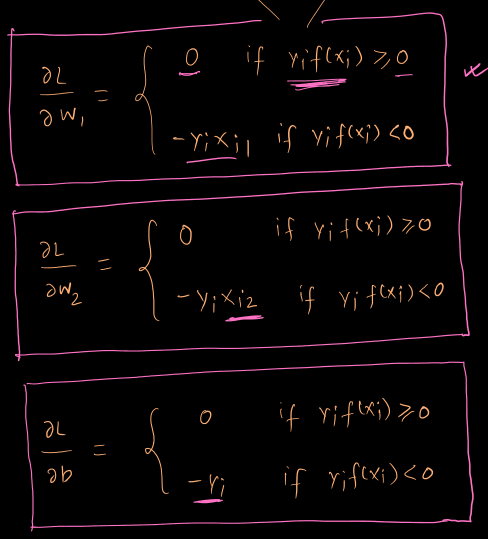 ∂L/∂w₁ = { 0 if yᵢf(xᵢ) ⩾ 0
-yᵢxᵢ₁ if yᵢf(xᵢ) < 0
∂L/∂w₂ = { 0 if yᵢf(xᵢ) ⩾ 0
-yᵢxᵢ₂ if yᵢf(xᵢ) < 0
∂L/∂b = { 0 if yᵢf(xᵢ) ⩾ 0
-yᵢ if yᵢf(xᵢ) < 0